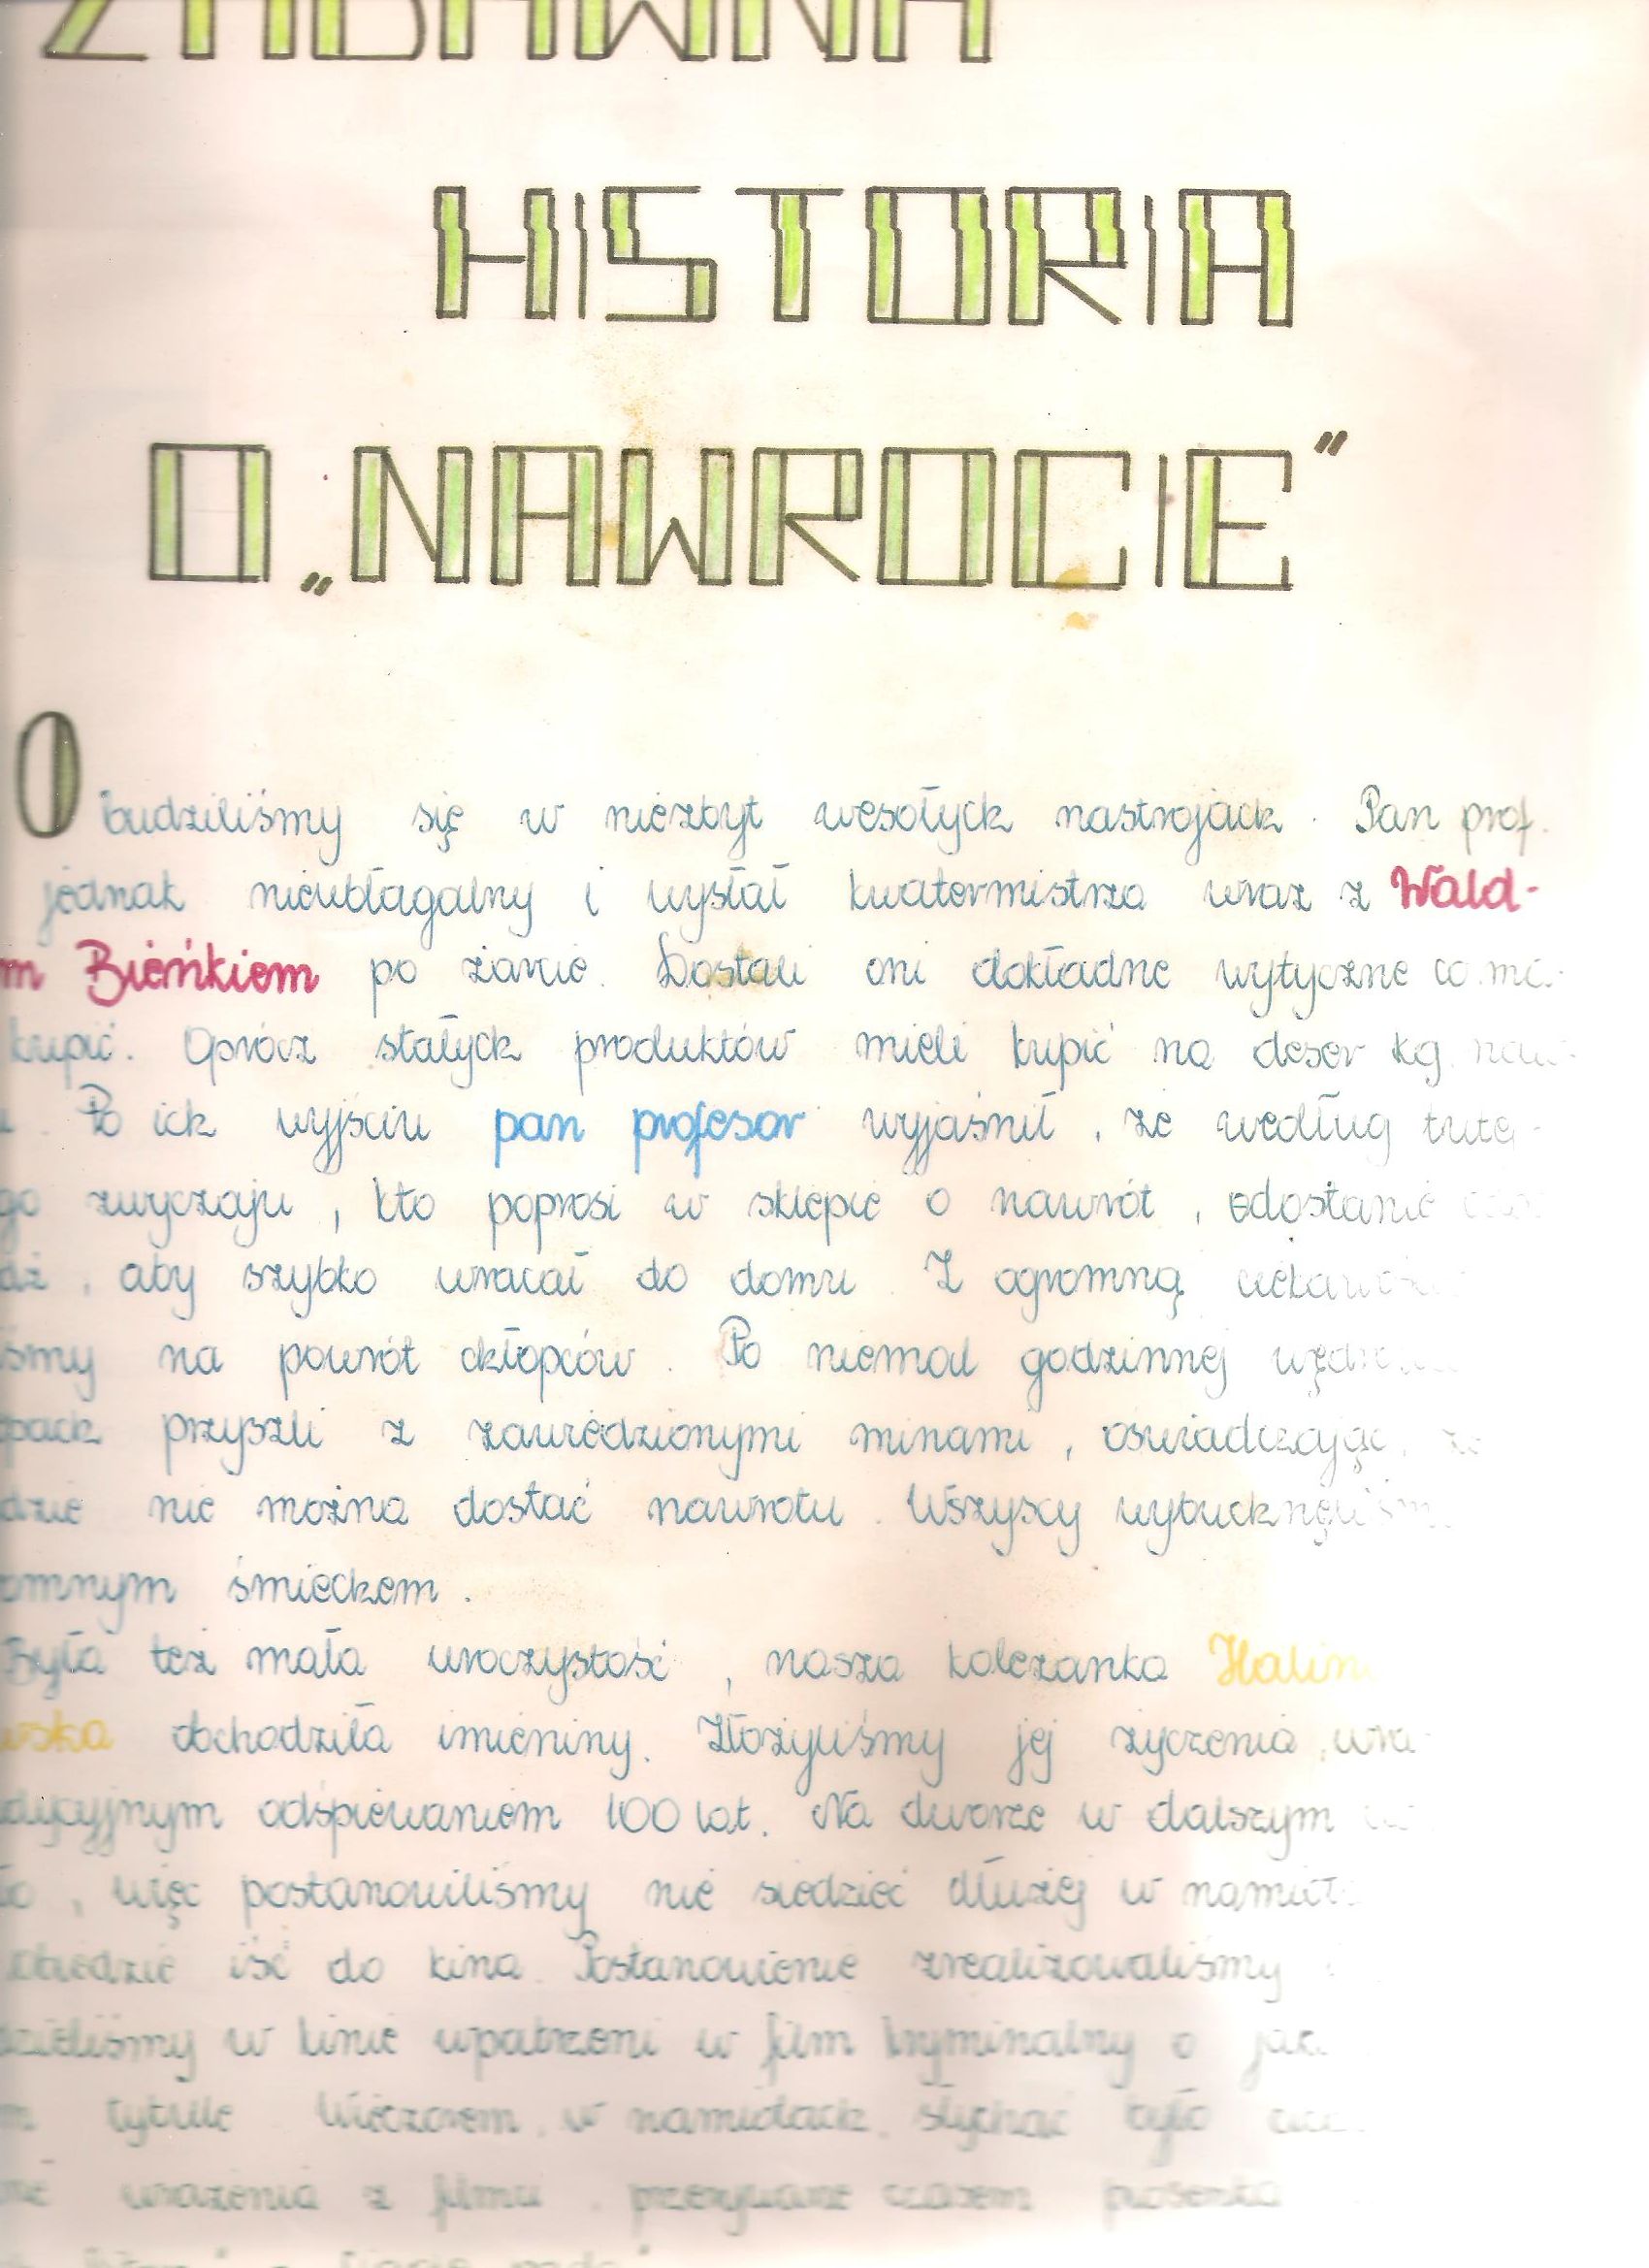 ZABAWNA
HISTORIA
O „NAWROCIE”
Obudziliśmy się w niezbyt wesołych nastrojach. Pan prof.
jednak nieubłagalny i wysłał kwatermistrza wraz z Wald-
m Bieńkiem po żarcie. Dostali oni dokładne wytyczne co ma-
kupić. Oprócz stałych produktów mieli kupić na deser kg naw-
u. Po ich wyjściu pan profesor wyjaśnił, że według tute-
go zwyczaju, kto poprosi w sklepie o nawrót, odostanie
dź, aby szybko wracał do domu. Z ogromną ciekawości
śmy na powrót chłopców. Po niemal godzinnej wędr
pach przyszli z zawiedzionymi minami, oświadczając, że
dzie nie można dostać nawrotu. Wszyscy wybuchnęliśm
omnym śmiechem.
Była też mała uroczystość, nasza koleżanka Halin
wska obchodziła imieniny. Złożyliśmy jej życzenia, wra
dycyjnym odśpiewaniem 100 lat. Na dworze w dalszym
ło, więc postanowiliśmy nie siedzieć dłużej w namiot
obiedzie iść do kina. Postanowienie zrealizowaliśmy i
dzieliśmy w kinie wpatrzeni w film kryminalny o jak
m tytule. Wieczorem, w namiotach, słychać było
ne wrażenia z filmu, przerywane czasem piosenką